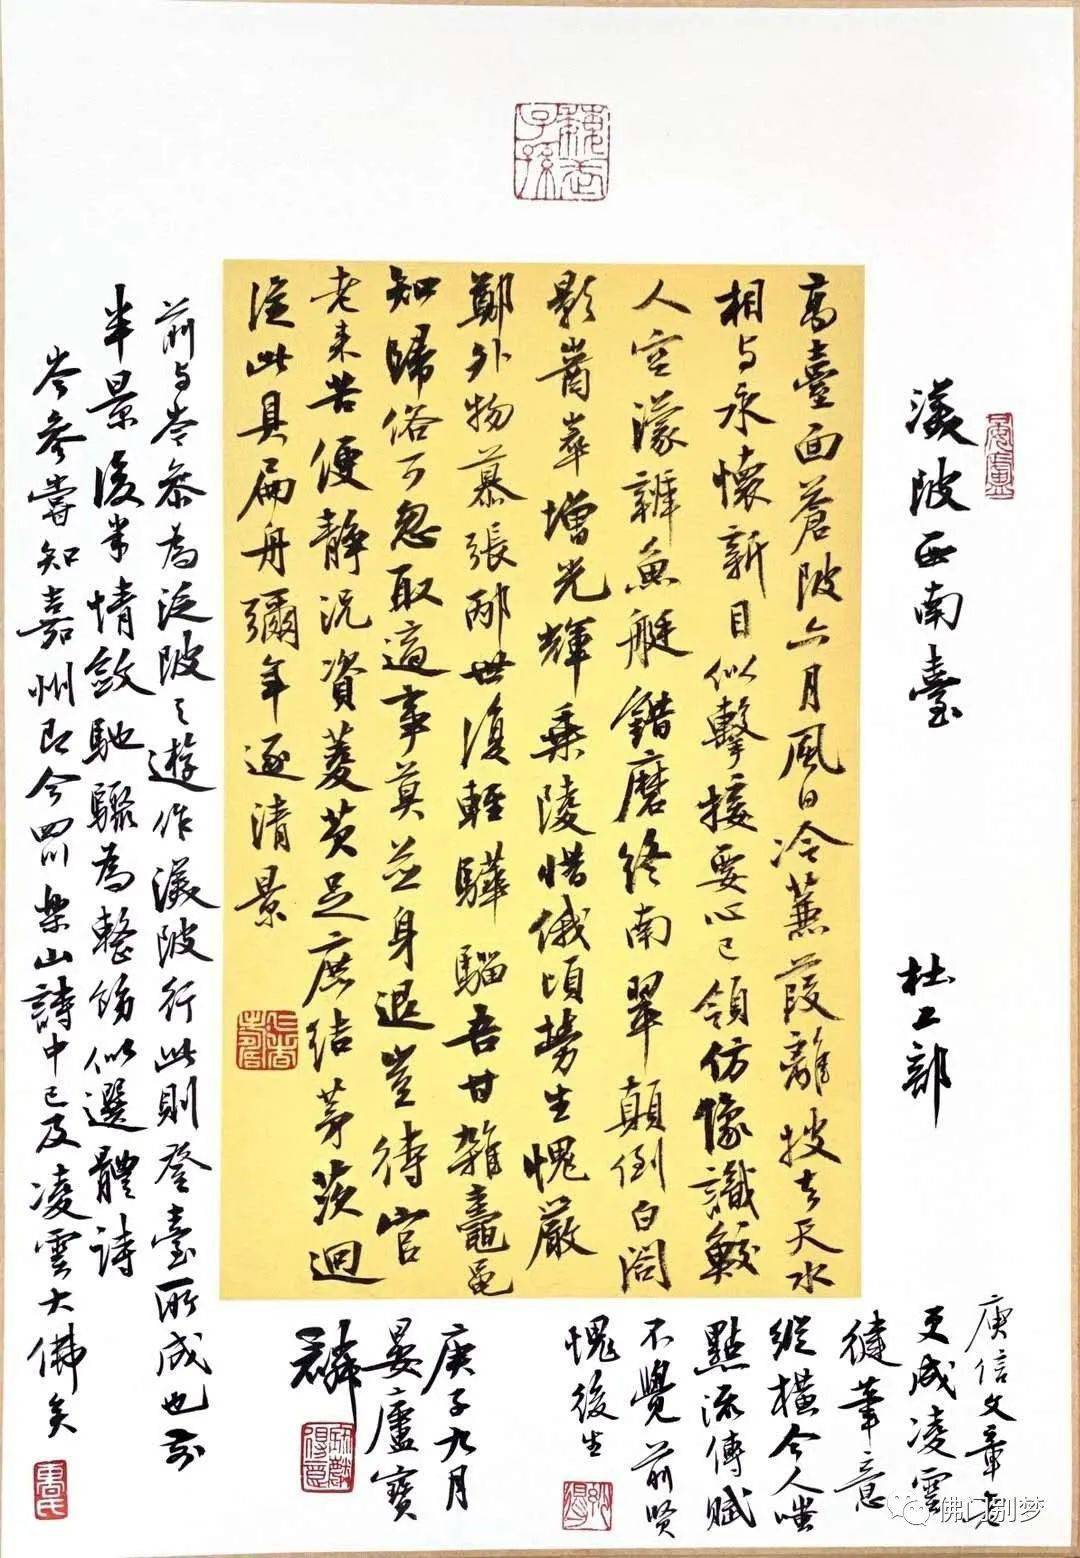 渼陂西南臺
杜工部
高臺面蒼陂六月風日冷蒹葭離披去天水
相与永懷新目似擊接要心已領仿像識鮫
人空濛辨魚艇錯磨終南翠顛倒白閣
影崷崒增光輝乘陵惜俄頃勞生愧嚴
鄭外物慕張邴世復輕驊騮吾甘雜鼃黽
知歸俗可忽取適事莫並身退豈待官
老来苦便静况資菱芡足庶结茅茨迥
從此具扁舟彌年逐清景
前与岑參為泛陂之遊作渼陂行此則登臺所成也前
半景後半情斂馳驟為整飭似選體詩
岑參嘗知嘉州即今四川樂山詩中已及凌雲大佛矣
庾信文章老
更成凌雲
健筆意
縱橫今人嗤
點流傳賦
不覺前賢
愧後生
庚子九月
晏廬寶
麟
佛门别梦